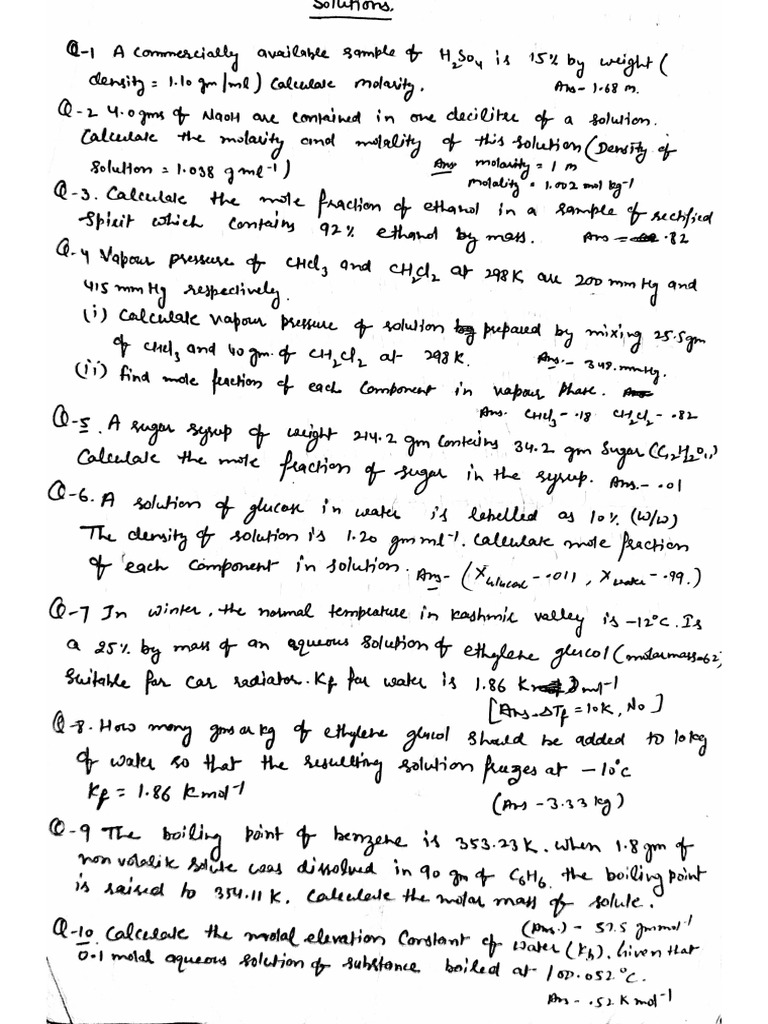 Solutions.
Q-1 A commercially available sample of H2SO4 is 15% by weight (
density = 1.10 gm/ml) Calculate molarity. Ans- 1.68 m.
Q-2 4.0gms of NaOH are contained in one decilitre of a solution.
Calculate the molarity and molality of this solution (Density of
solution = 1.038 g ml-1) Ans molarity = 1 m
molality = 1.002 mol kg-1
Q-3. Calculate the mole fraction of ethanol in a sample of rectified
spirit which contains 92% ethanol by mass. Ans = .82
Q-4 Vapour pressure of CHCl3 and CH2Cl2 at 298K are 200 mm Hg and
415 mm Hg respectively.
(i) Calculate vapour pressure of solution prepared by mixing 25.5gm
of CHCl3 and 40 gm. of CH2Cl2 at 298K. Ans.- 348.mmHg.
(ii) find mole fraction of each component in vapour phase.
Ans. CHCl3 - .18 CH2Cl2 - .82
Q-5. A sugar syrup of weight 214.2 gm contains 34.2 gm sugar (C12H22O11)
Calculate the mole fraction of sugar in the syrup. Ans.- .01
Q-6. A solution of glucose in water is labelled as 10% (W/W)
The density of solution is 1.20 gm ml-1. Calculate mole fraction
of each component in solution. Ans- (Xglucose - .011, Xwater - .99.)
Q-7 In winter, the normal temprature in Kashmir valley is -12°C. Is
a 25% by mass of an aqueous solution of ethylene glycol (molarmass=62)
suitable for car radiator. Kf for water is 1.86 K mol-1
[Ans- ΔTf = 10K, No]
Q-8. How many gms or kg of ethylene glycol should be added to 10kg
of water so that the resulting solution freezes at -10°C
Kf = 1.86 K mol-1 (Ans - 3.33 kg)
Q-9 The boiling point of benzene is 353.23K. When 1.8 gm of
non volatile solute was dissolved in 90 gm of C6H6. the boiling point
is raised to 354.11K. Calculate the molar mass of solute.
(Ans.) - 57.5 gm mol-1
Q-10 Calculate the molal elevation Constant of water (Kb). Given that
0.1 molal aqueous solution of substance boiled at 100.052°C.
Ans- .52 K mol-1